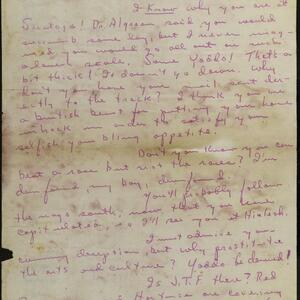 I know why you are at
Saratoga! Dr. Algren said you would
succumb some day, but I never imag-
ined you would go all out on such
a lavish scale. Some Yaddo! That's a
bit thick! It doesn't go down. Why
don't you have your mail sent dir-
ectly to the track? I think you are
a brutish beast for putting your home
in hock in order to satisfy your
selfish gambling appetite.
Don't you know you can
beat a race but not the races? I'm
dumfound, my boy, dumfound.
You'll probably follow
the nags south, now that you have
capitulated, so I'll see you at Hialeah.
I must admire your
cunning deception, but why prostitute
the arts and culture? Yaddo be damned!
Is J.T.F. there? Red
are covering